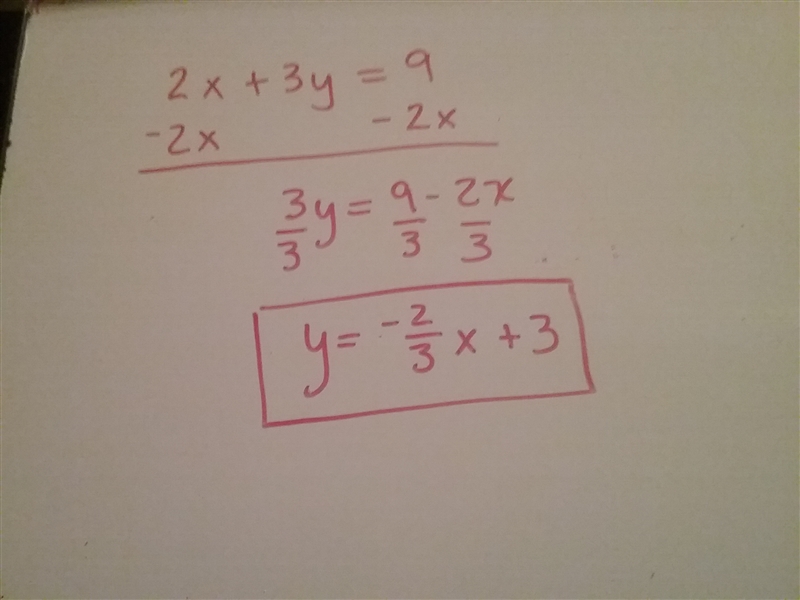 2x + 3y = 9
-2x - 2x
3/3 y = 9/3 - 2x/3
y = -2/3 x + 3